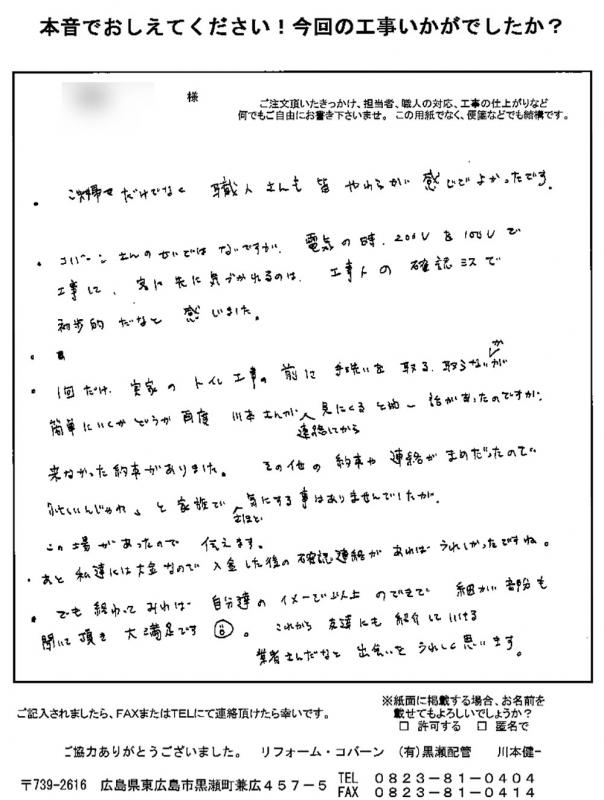 本音でおしえてください！今回の工事いかがでしたか？
様
ご注文頂いたきっかけ、担当者、職人の対応、工事の仕上がりなど
何でもご自由にお書き下さいませ。この用紙でなく、便箋などでも結構です。
だけでなく 職人さんも 皆 やわらかい 感じでよかったです。
・コバーンさんのせいではないですが、電気の時、200Vを100Vで
工事して、客に先に気づかれるのは、工事人の確認ミスで
初歩的だなと 感じました。
・
・1回だけ、実家のトイレ工事の前に手洗いを取る、取らないが
簡単にいくかどうか再度 川本さんが 連絡してから 見にくると 話があったのですが、
来なかった約束がありました。その他の約束や連絡がまめだったので
「忙しいんじゃね」と家族で さほど 気にする事はありませんでしたが、
この場があったので 伝えます。
・あと私達には大金なので入金した後の確認連絡があればうれしかったですね。
・でも終わってみれば 自分達のイメージ以上のできで 細かい部分も
聞いて頂き 大満足です。これから友達にも紹介していける
業者さんだなと 出会いをうれしく思います。
ご記入されましたら、FAXまたはTELにて連絡頂けたら幸いです。
※紙面に掲載する場合、お名前を
載せてもよろしいでしょうか？
□ 許可する □ 匿名で
ご協力ありがとうございました。 リフォーム・コバーン (有)黒瀬配管 川本健一
〒739-2616 広島県東広島市黒瀬町兼広４５７－５ TEL ０８２３－８１－０４０４
FAX ０８２３－８１－０４１４